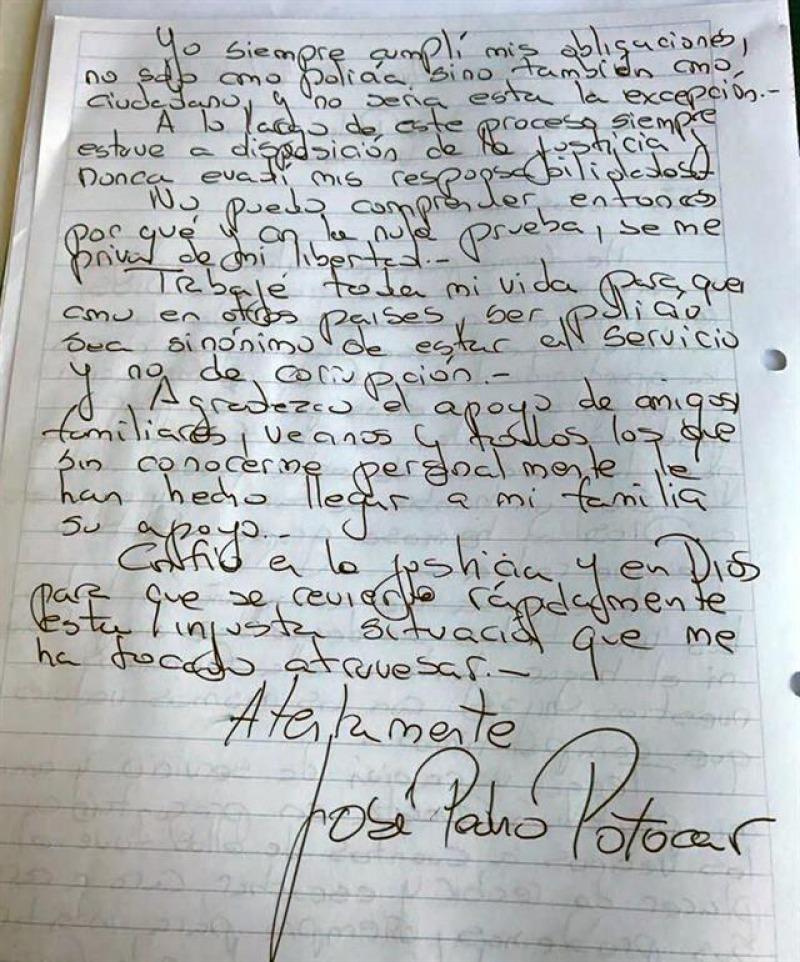 Yo siempre cumplí mis obligaciones,
no sólo como policía sino también como
ciudadano, y no sería esta la excepción.-
A lo largo de este proceso siempre
estuve a disposición de la Justicia y
nunca evadí mis responsabilidades.
No puedo comprender entonces
por qué y con la nula prueba, se me
priva de mi libertad.-
Trabajé toda mi vida para que
como en otros países, ser policía
sea sinónimo de estar al servicio
y no de corrupción.-
Agradezco el apoyo de amigos,
familiares, vecinos y todos los que
sin conocerme personalmente le
han hecho llegar a mi familia
su apoyo.-
Confío en la justicia y en Dios
para que se revierta rápidamente
esta injusta situación que me
ha tocado atravesar.-
Atentamente
José Pedro Potocar